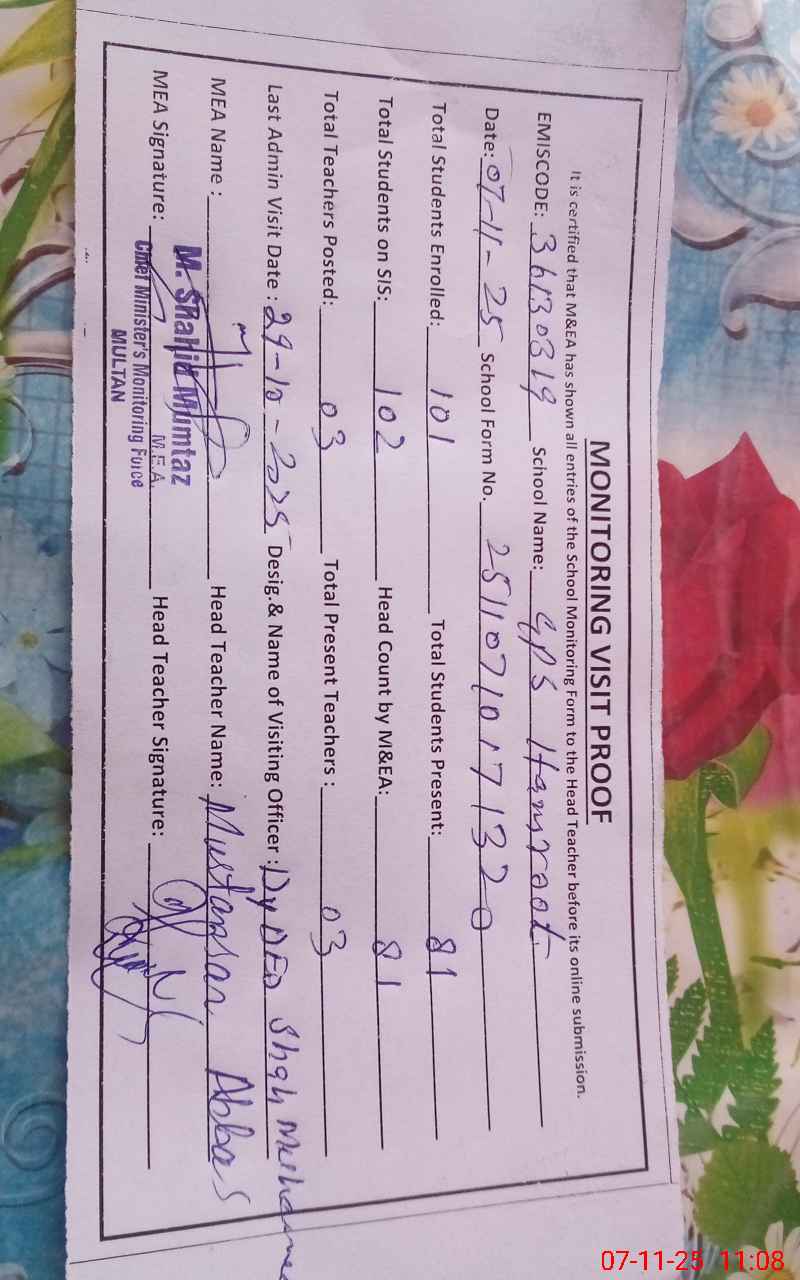 MONITORING VISIT PROOF
It is certified that M&EA has shown all entries of the School Monitoring Form to the Head Teacher before its online submission.
EMISCODE: 36130319 School Name: GPS Hamroot
Date: 07-11-25 School Form No. 25110710171320
Total Students Enrolled: 101 Total Students Present: 81
Total Students on SIS: 102 Head Count by M&EA: 81
Total Teachers Posted: 03 Total Present Teachers : 03
Last Admin Visit Date : 29-10-2025 Desig.& Name of Visiting Officer : Dy DEO Shah Muhammad
MEA Name : Head Teacher Name: Mustansar Abbas
M. Shahid Mumtaz
MEA Signature: M.E.A. Head Teacher Signature:
Chief Minister's Monitoring Force
MULTAN
07-11-25 11:08